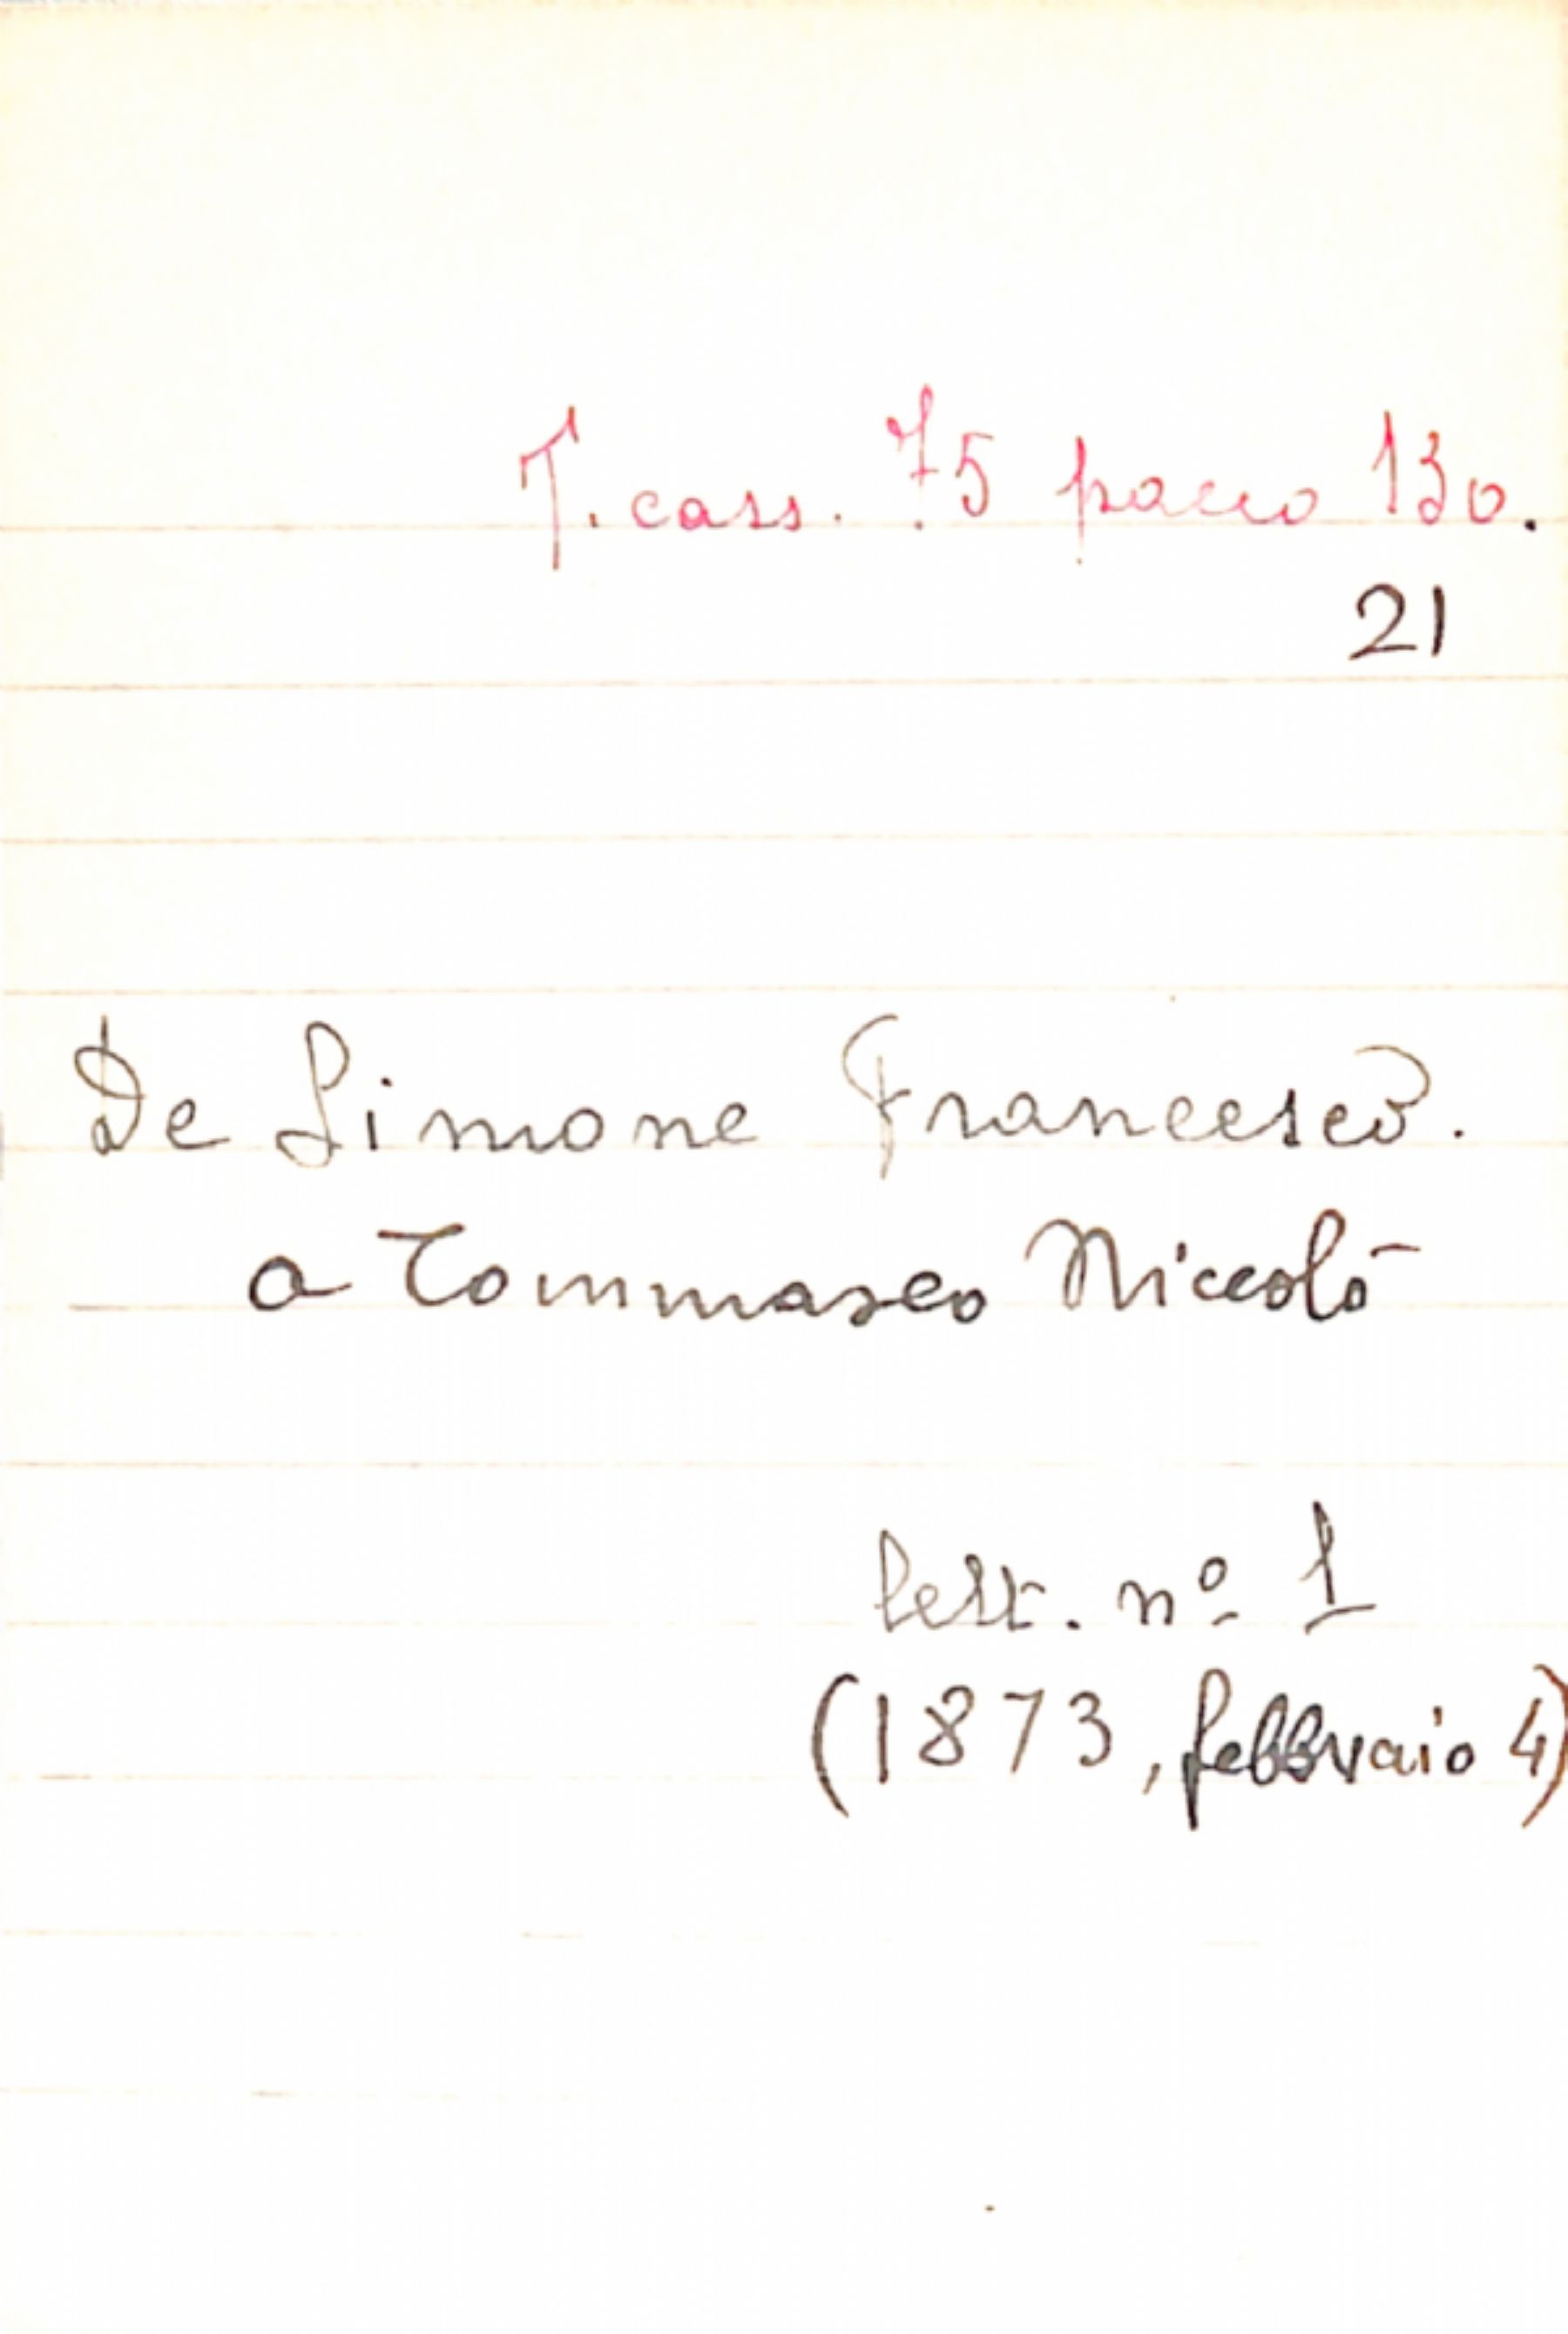 T. cass. 75 pacco 130.
21
De Simone Francesco.
a Tommaseo Niccolò
lett. nº 1
(1873, febbraio 4)